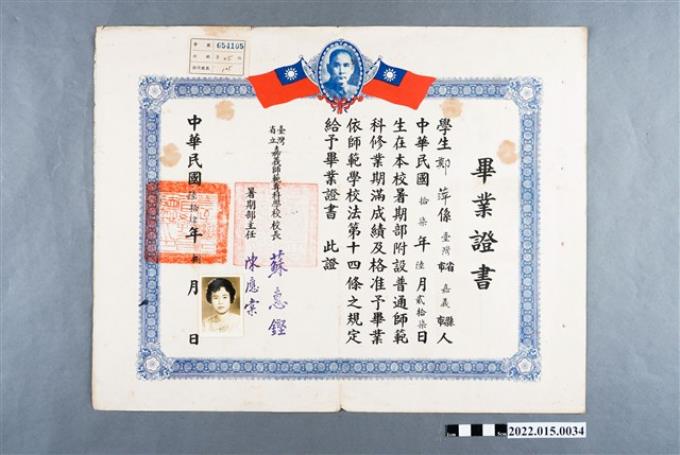 畢業證書
學生鄭萍係臺灣省市嘉義縣市人
中華民國拾柒年陸月貳拾柒日
生在本校暑期部附設普通師範
科修業期滿成績及格准予畢業
依師範學校法第十四條之規定
給予畢業證書 此證
臺灣省立嘉義師範專科學校校長 蘇惠鏗
暑期部主任 陳應棠
中華民國 年 月 日
654105
2022.015.0034